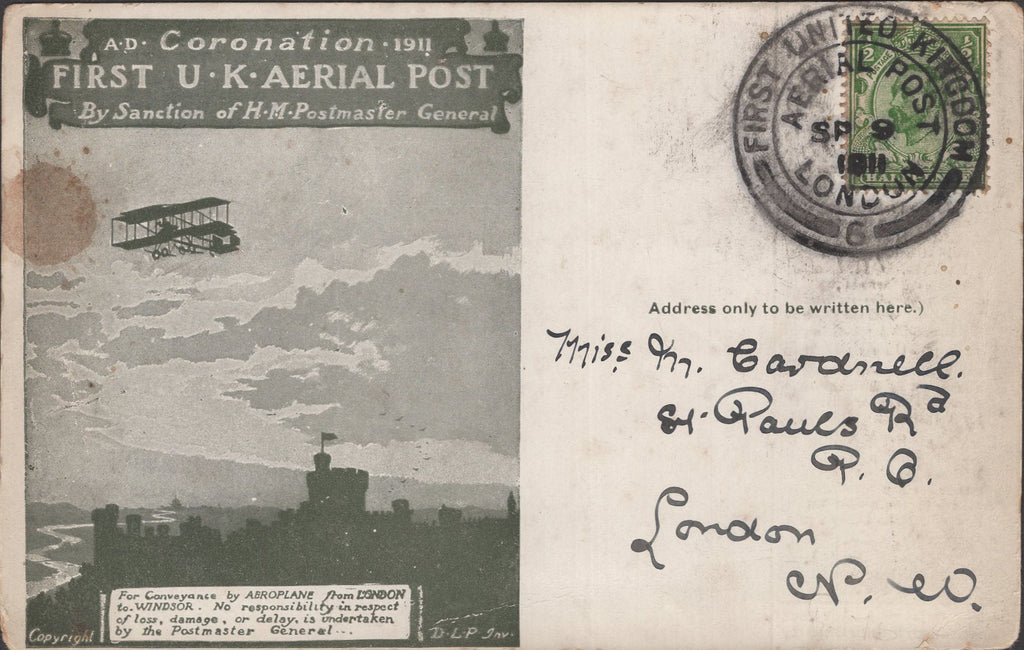 A·D· Coronation ·1911
FIRST U·K·AERIAL POST
By Sanction of H·M·Postmaster General
For Conveyance by AEROPLANE from LONDON
to WINDSOR. No responsibility in respect
of loss, damage, or delay, is undertaken
by the Postmaster General...
Copyright
D·L·P Inv.
FIRST UNITED KINGDOM
AERIAL POST
SP 9
1911
LONDON
6
Address only to be written here.)
Miss M. Cardnell.
St. Pauls Rd
P. O.
London
N. W.